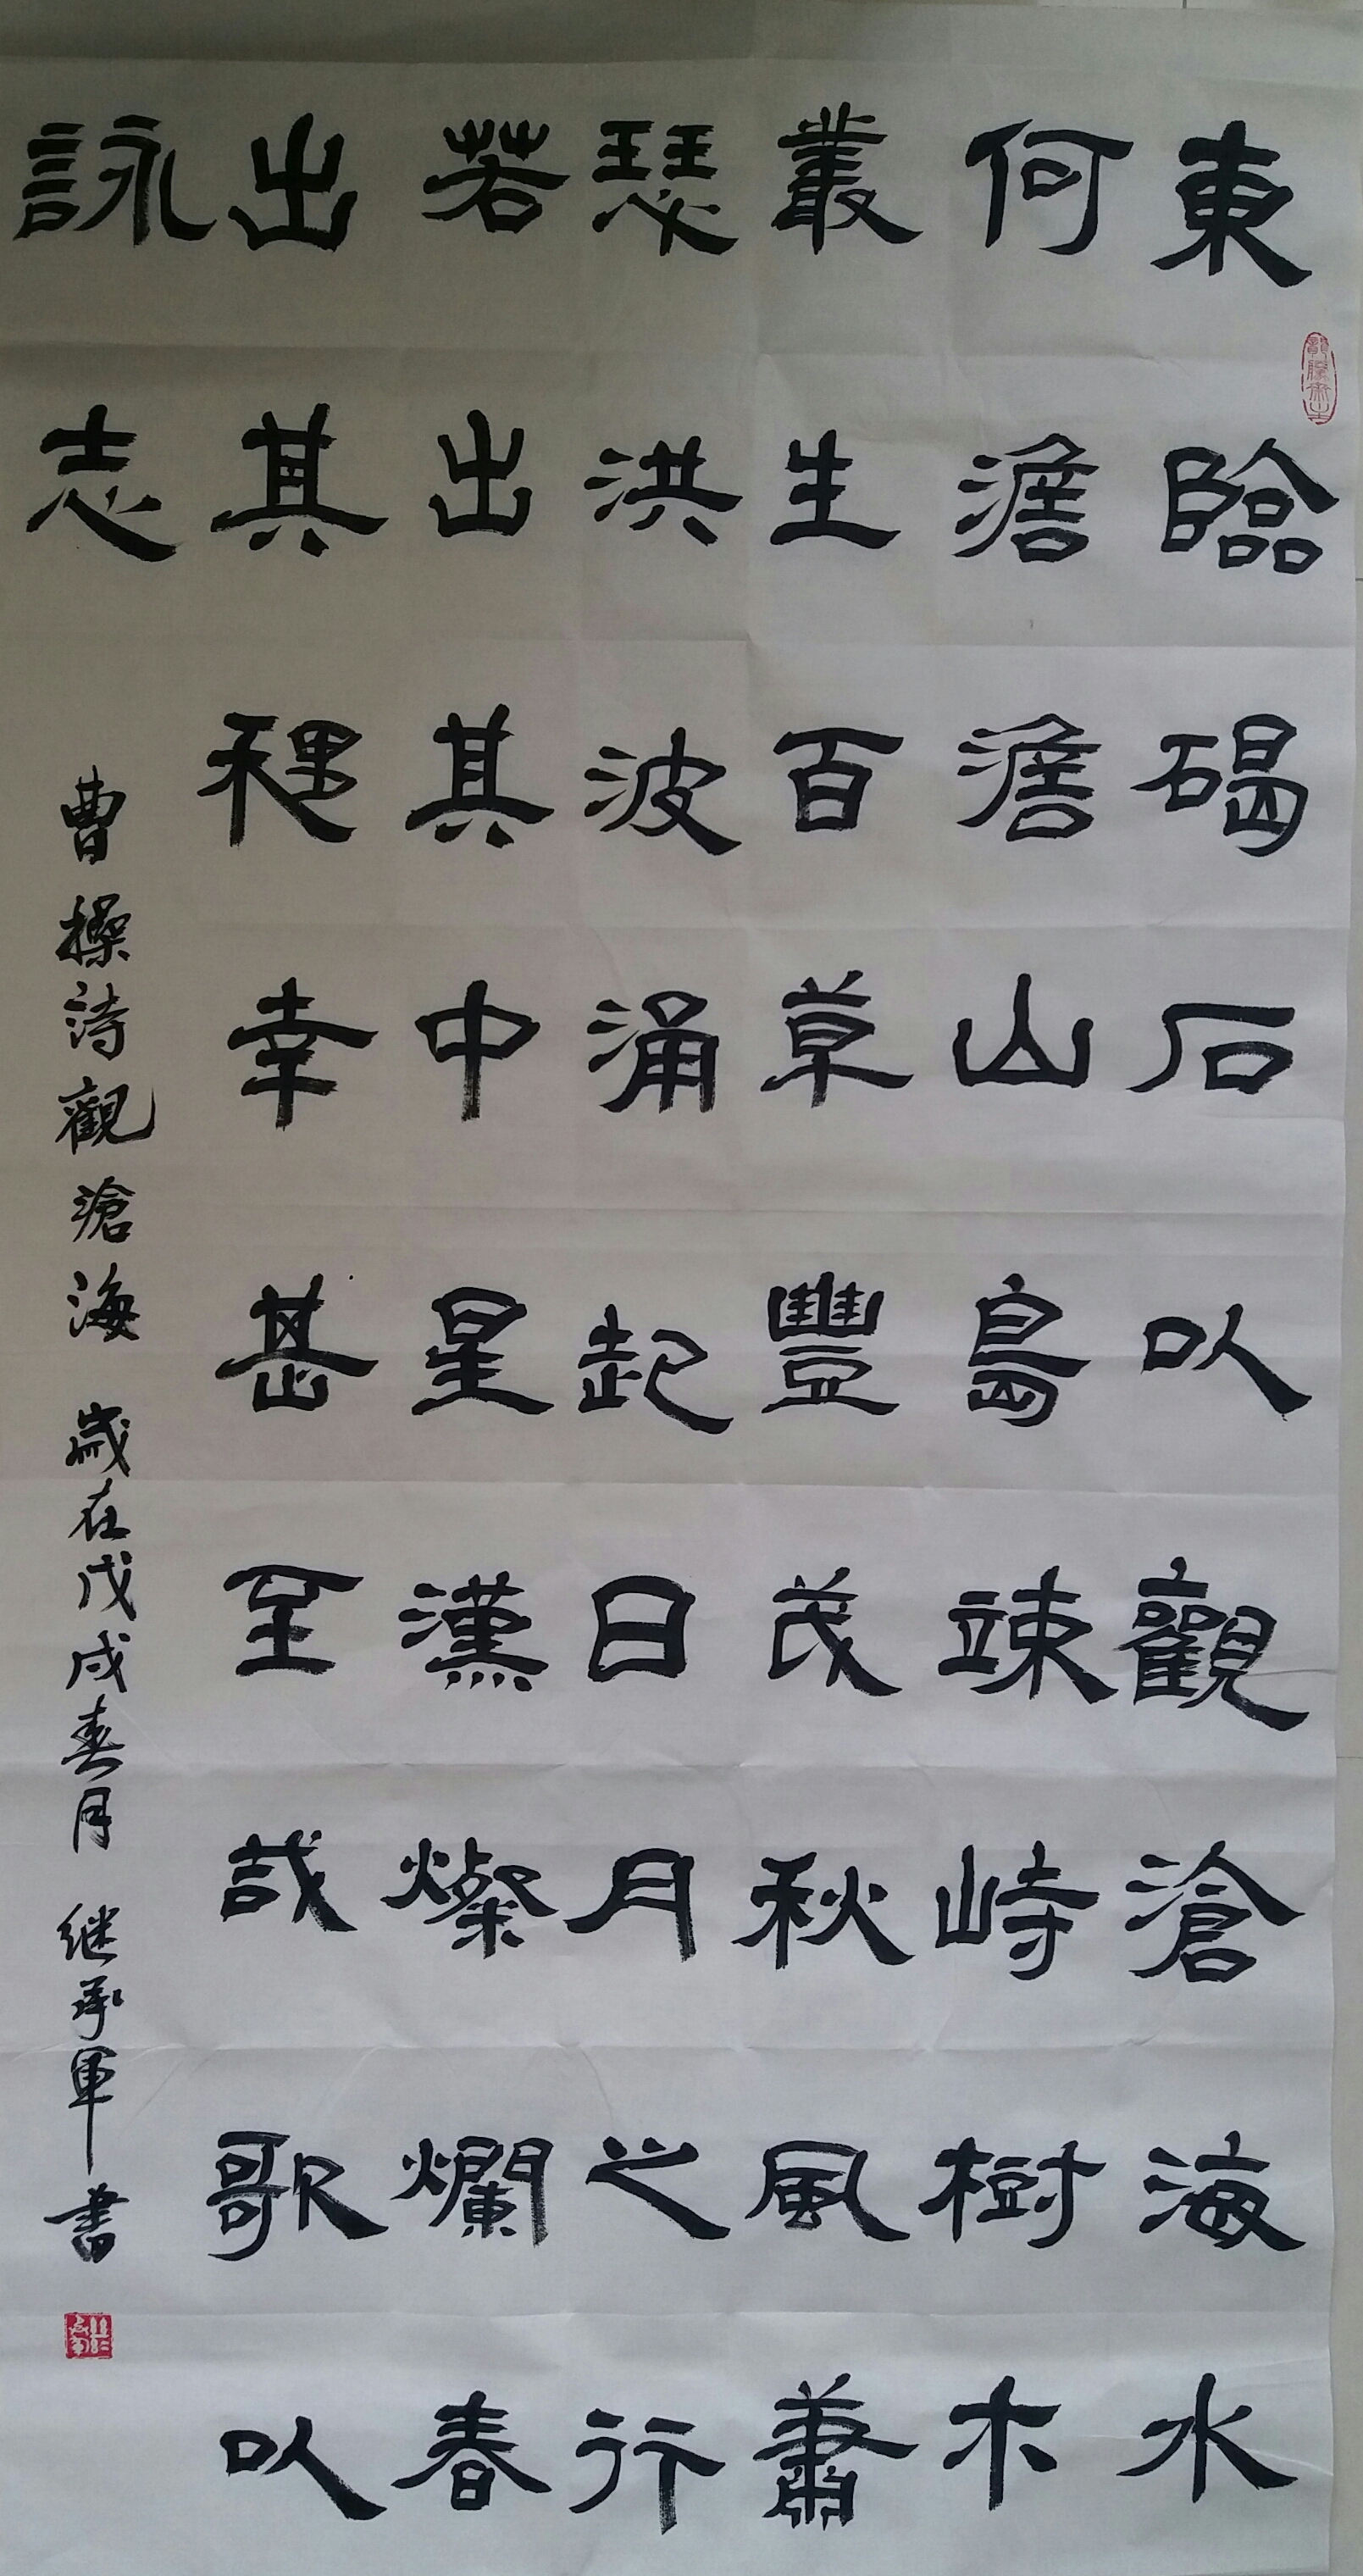 東臨碣石以觀滄海水
何澹澹山島竦峙樹木
叢生百草豐茂秋風蕭
瑟洪波涌起日月之行
若出其中星漢燦爛春
出其幸甚至哉歌以
詠志
曹操詩觀滄海 歲在戊戌春月 继承軍書